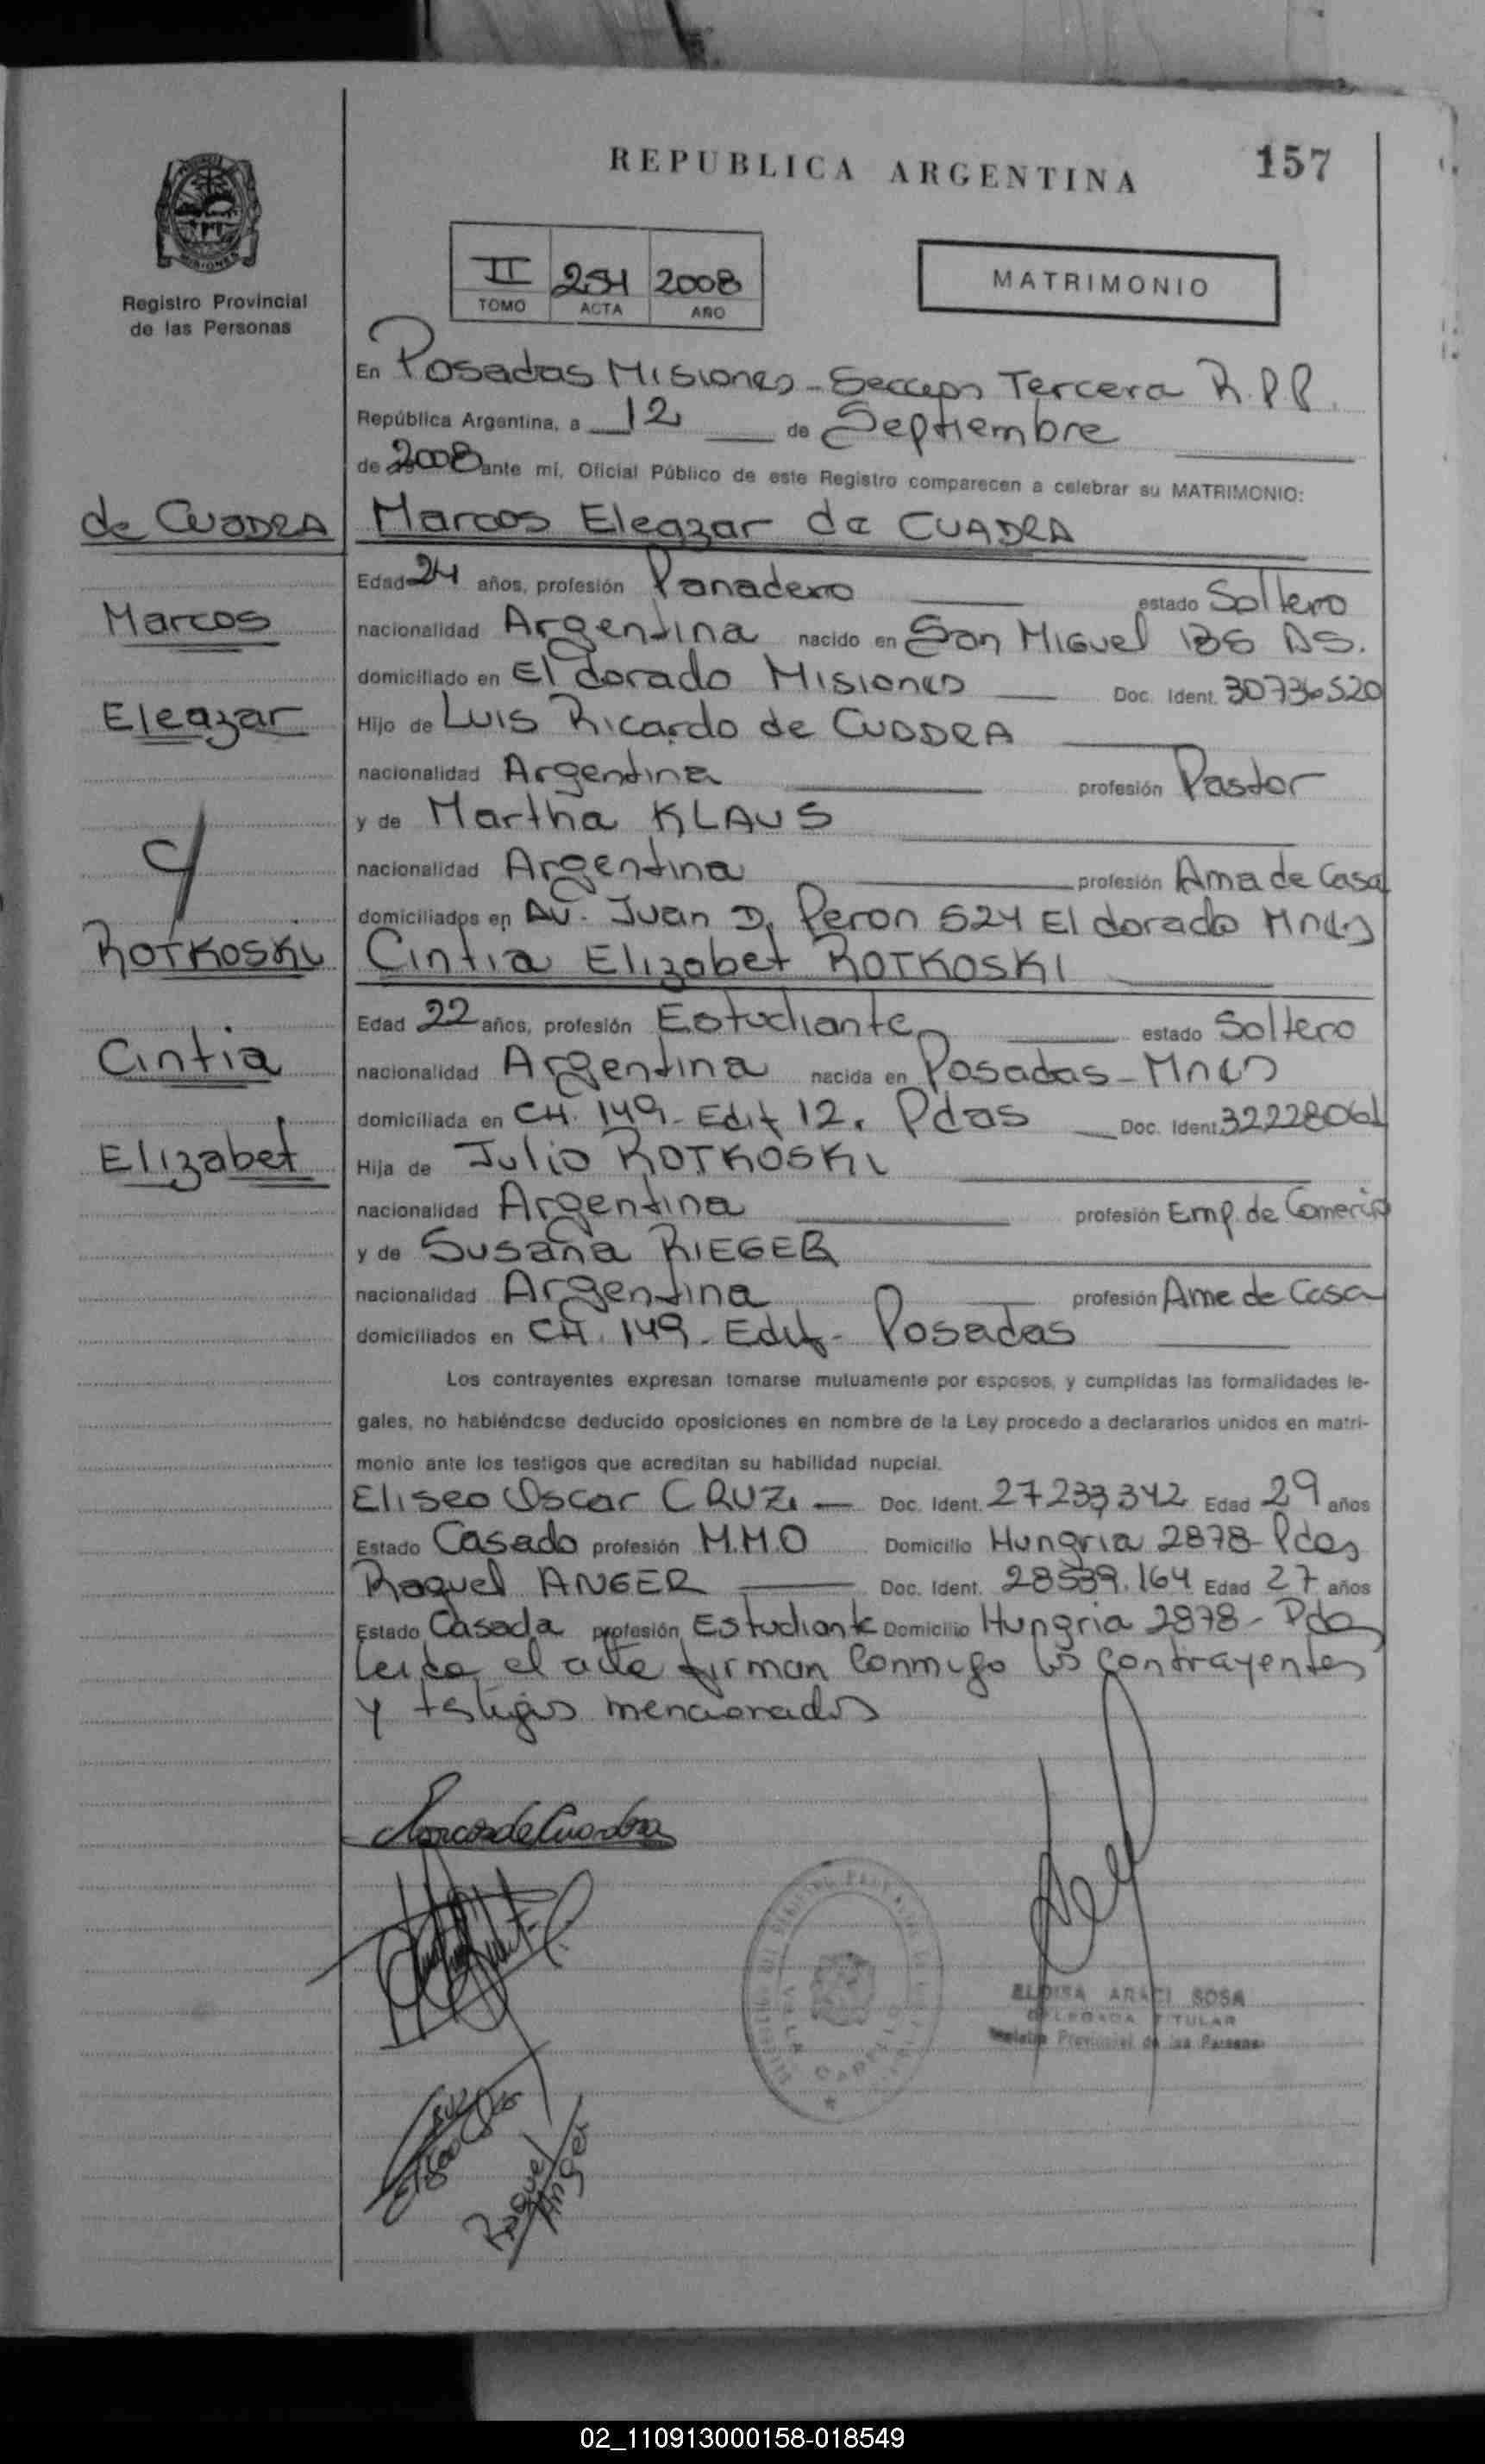 REPUBLICA ARGENTINA
157
Registro Provincial
de las Personas
II 254 2008
TOMO ACTA AÑO
MATRIMONIO
En Posadas Misiones - Tercera R.P.P.
República Argentina, a 12 de Septiembre
de 2008 ante mi, Oficial Público de este Registro comparecen a celebrar su MATRIMONIO:
de CUADRA
Marcos
Eleazar
y
ROTKOSKI
Cintia
Elizabet
Marcos Eleazar de CUADRA
Edad 24 años, profesión Panadero estado Soltero
nacionalidad Argentina nacido en San Miguel BS AS.
domiciliado en El dorado Misiones Doc. Ident. 30736520
Hijo de Luis Ricardo de CUADRA
nacionalidad Argentina profesión Pastor
y de Martha KLAUS
nacionalidad Argentina profesión Ama de Casa
domiciliados en Av. Juan D. Peron 524 El dorado Mnes
Cintia Elizabet ROTKOSKI
Edad 22 años, profesión Estudiante estado Soltero
nacionalidad Argentina nacida en Posadas - Mnes
domiciliada en CH. 149 - Edif 12. Pdas Doc. Ident. 32228061
Hija de Julio ROTKOSKI
nacionalidad Argentina profesión Emp. de Comercio
y de Susana RIEGER
nacionalidad Argentina profesión Ama de Casa
domiciliados en CH. 149 - Edif - Posadas
Los contrayentes expresan tomarse mutuamente por esposos, y cumplidas las formalidades le-
gales, no habiéndose deducido oposiciones en nombre de la Ley procedo a declararlos unidos en matri-
monio ante los testigos que acreditan su habilidad nupcial.
Eliseo Oscar CRUZ Doc. Ident. 27233342 Edad 29 años
Estado Casado profesión M.M.O Domicilio Hungria 2878 - Pdas
Raquel ANGER Doc. Ident. 28539.164 Edad 27 años
Estado Casada profesión Estudiante Domicilio Hungria 2878 - Pdas
Leida el acta firman conmigo los contrayentes
y testigos mencionados
Marcos de Cuadra
ELOISA ARACI SOSA
DELEGADA TITULAR
Registro Provincial de las Personas
VILLA CABELLO
Raquel
Anger
02_110913000158-018549